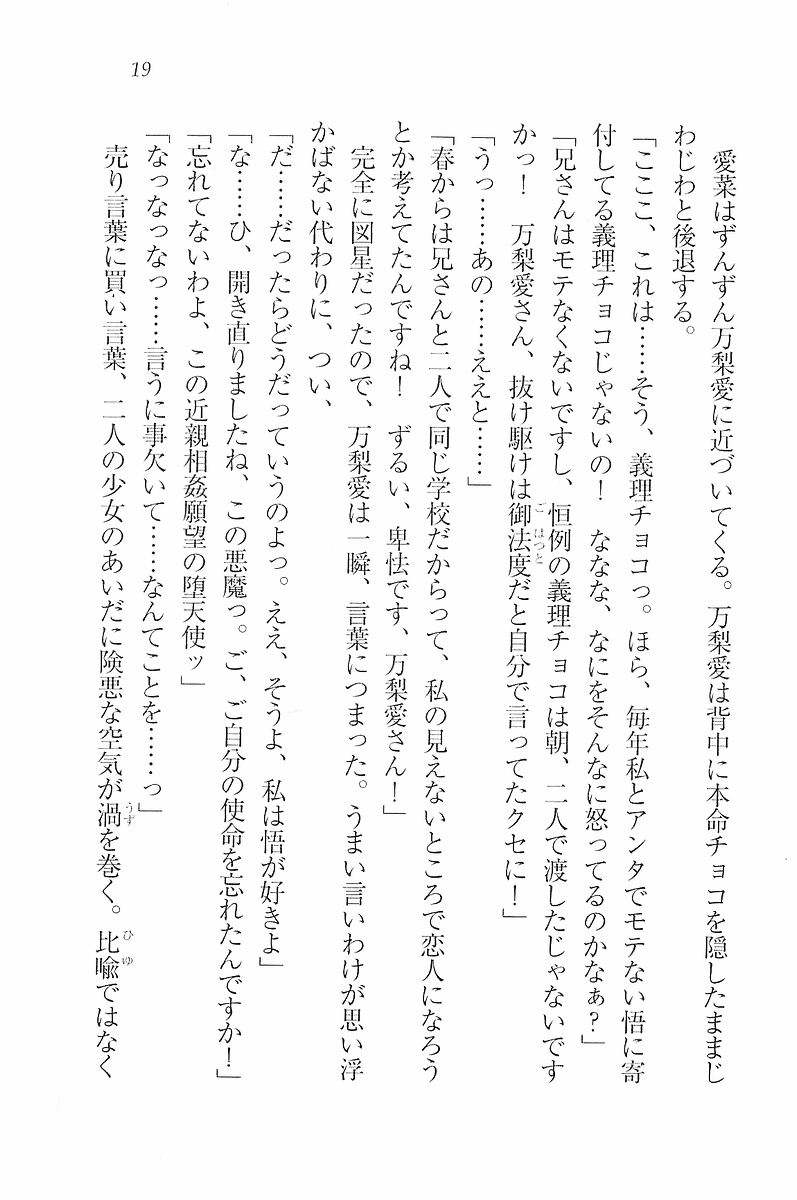 19
愛菜はずんずん万梨愛に近づいてくる。万梨愛は背中に本命チョコを隠したままじ
わじわと後退する。
「こここ、これは……そう、義理チョコっ。ほら、毎年私とアンタでモテない悟に寄
付してる義理チョコじゃないの！　ななな、なにをそんなに怒ってるのかなぁ？」
「兄さんはモテなくないですし、恒例の義理チョコは朝、二人で渡したじゃないです
かっ！　万梨愛さん、抜け駆けは御法度だと自分で言ってたクセに！」
「うっ……あの……ええと……」
「春からは兄さんと二人で同じ学校だからって、私の見えないところで恋人になろう
とか考えてたんですね！　ずるい、卑怯です、万梨愛さん！」
完全に図星だったので、万梨愛は一瞬、言葉につまった。うまい言いわけが思い浮
かばない代わりに、つい、
「だ……だったらどうだっていうのよっ。ええ、そうよ、私は悟が好きよ」
「な……ひ、開き直りましたね、この悪魔っ。ご、ご自分の使命を忘れたんですか！」
「忘れてないわよ、この近親相姦願望の堕天使ッ」
「なっなっなっ……言うに事欠いて……なんてことを……っ」
売り言葉に買い言葉、二人の少女のあいだに険悪な空気が渦を巻く。比喩ではなく